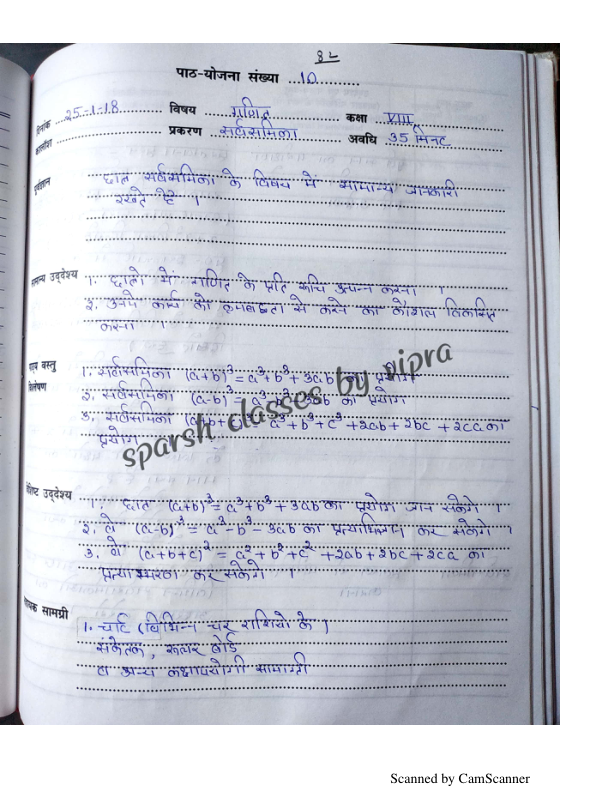 82
पाठ-योजना संख्या ...10............
दिनांक ...25.-1-18............ विषय ....गणित............ कक्षा ....VIII............
कालांश............ प्रकरण ...सर्वसमिका............ अवधि ...35 मिनट
पूर्वज्ञान छात्र सर्वसमिका के विषय में सामान्य जानकारी
रखते है ।
सामान्य उद्देश्य 1. छात्रो में गणित के प्रति रूचि उत्पन्न करना ।
2. उनमे कार्य को क्रमबद्धता से करने का कौशल विकसित
करना ।
पाठ्य वस्तु 1. सर्वसमिका (a+b)³ = a³+b³+3ab का प्रयोग
विश्लेषण 2. सर्वसमिका (a-b)³ = a³-b³-3ab का प्रयोग
3. सर्वसमिका (a+b+c)² = a²+b²+c²+2ab+2bc+2ca का
प्रयोग
sparsh classes by vipra
विशिष्ट उद्देश्य 1. छात्र (a+b)³ = a³+b³+3ab का प्रयोग जान सकेगे ।
2. वे (a-b)³ = a³-b³-3ab का प्रत्याभिज्ञान कर सकेगे ।
3. वे (a+b+c)² = a²+b²+c²+2ab+2bc+2ca का
प्रत्यास्मरण कर सकेगे ।
सहायक सामग्री 1. चार्ट (विभिन्न चर राशियो के)
संकेतक, रूलर बोर्ड
व अन्य कक्षापयोगी सामाग्री
Scanned by CamScanner